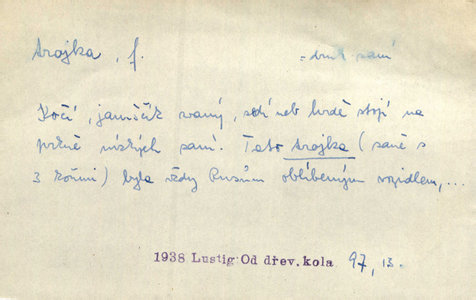 trojka, f. = druh saní
Kočí, jamščik zvaný, sedí neb hrdě stojí na
prkně nízkých saní. Tato trojka (saně s
3 koňmi) byla vždy Rusům oblíbeným vozidlem,...
1938 Lustig: Od dřev. kola 97, 13.